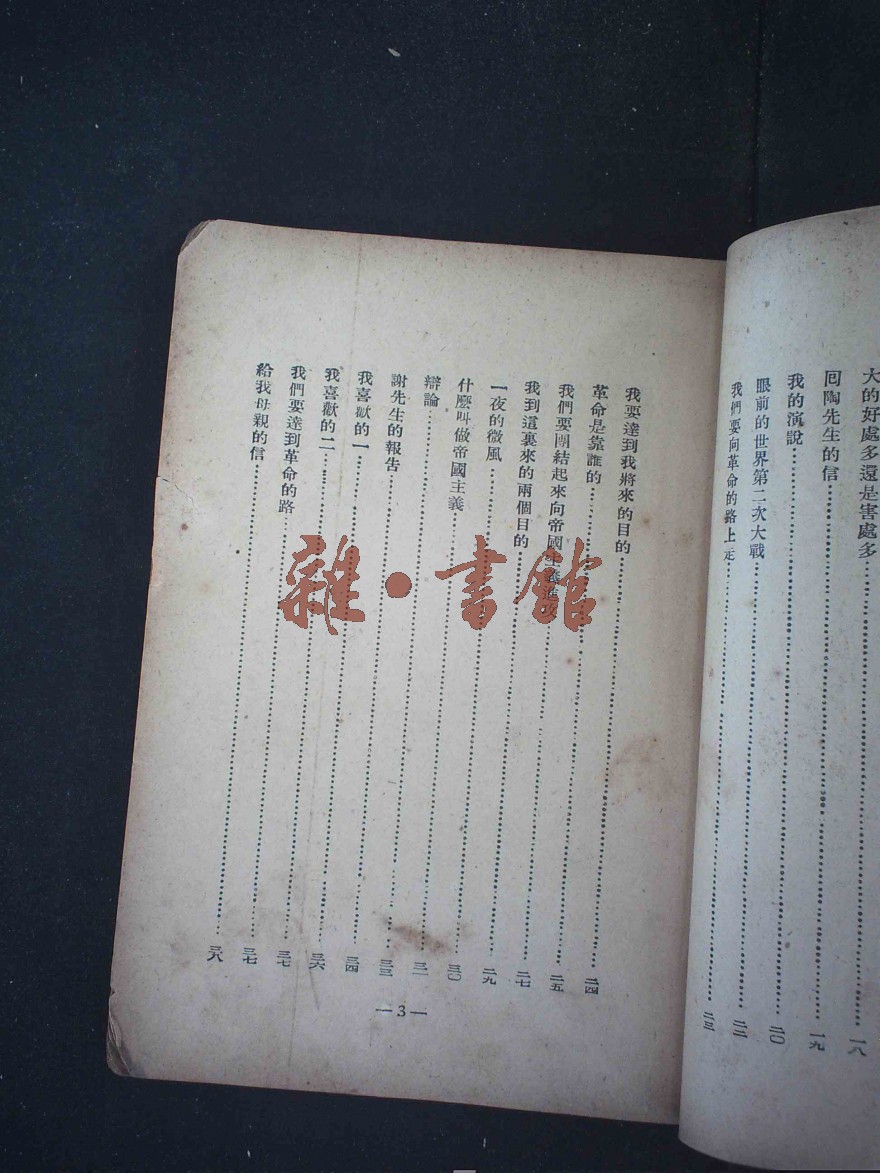 大的好處多還是害處多……一八
囘陶先生的信……一九
我的演說……二〇
眼前的世界第二次大戰……二二
我們要向革命的路上走……二三
我要達到我將來的目的……二四
革命是靠誰的……二五
我們要團結起來向帝國主義進攻……二七
我到這裏來的兩個目的……二九
一夜的微風……三〇
什麼叫做帝國主義……三一
辯論……三三
謝先生的報告……三四
我喜歡的一……三六
我喜歡的二……三七
我們要達到革命的路……三七
給我母親的信……三八
—3—
雜·書館